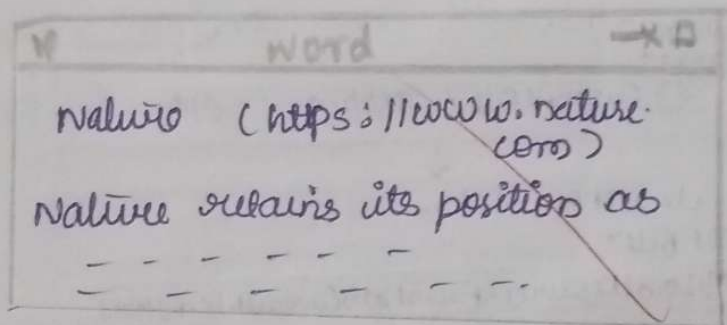 W word - x □
Nature (https://www.nature.
com)
Nature retains its position as
- - - - - -
- - - - - -.